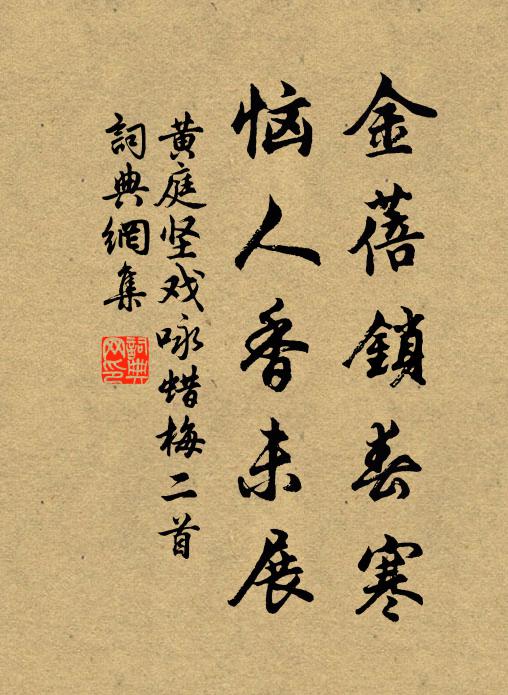 金蓓鎖春寒
恼人香未展
黄庭坚戏咏蜡梅二首
詞典網集
詞典網印